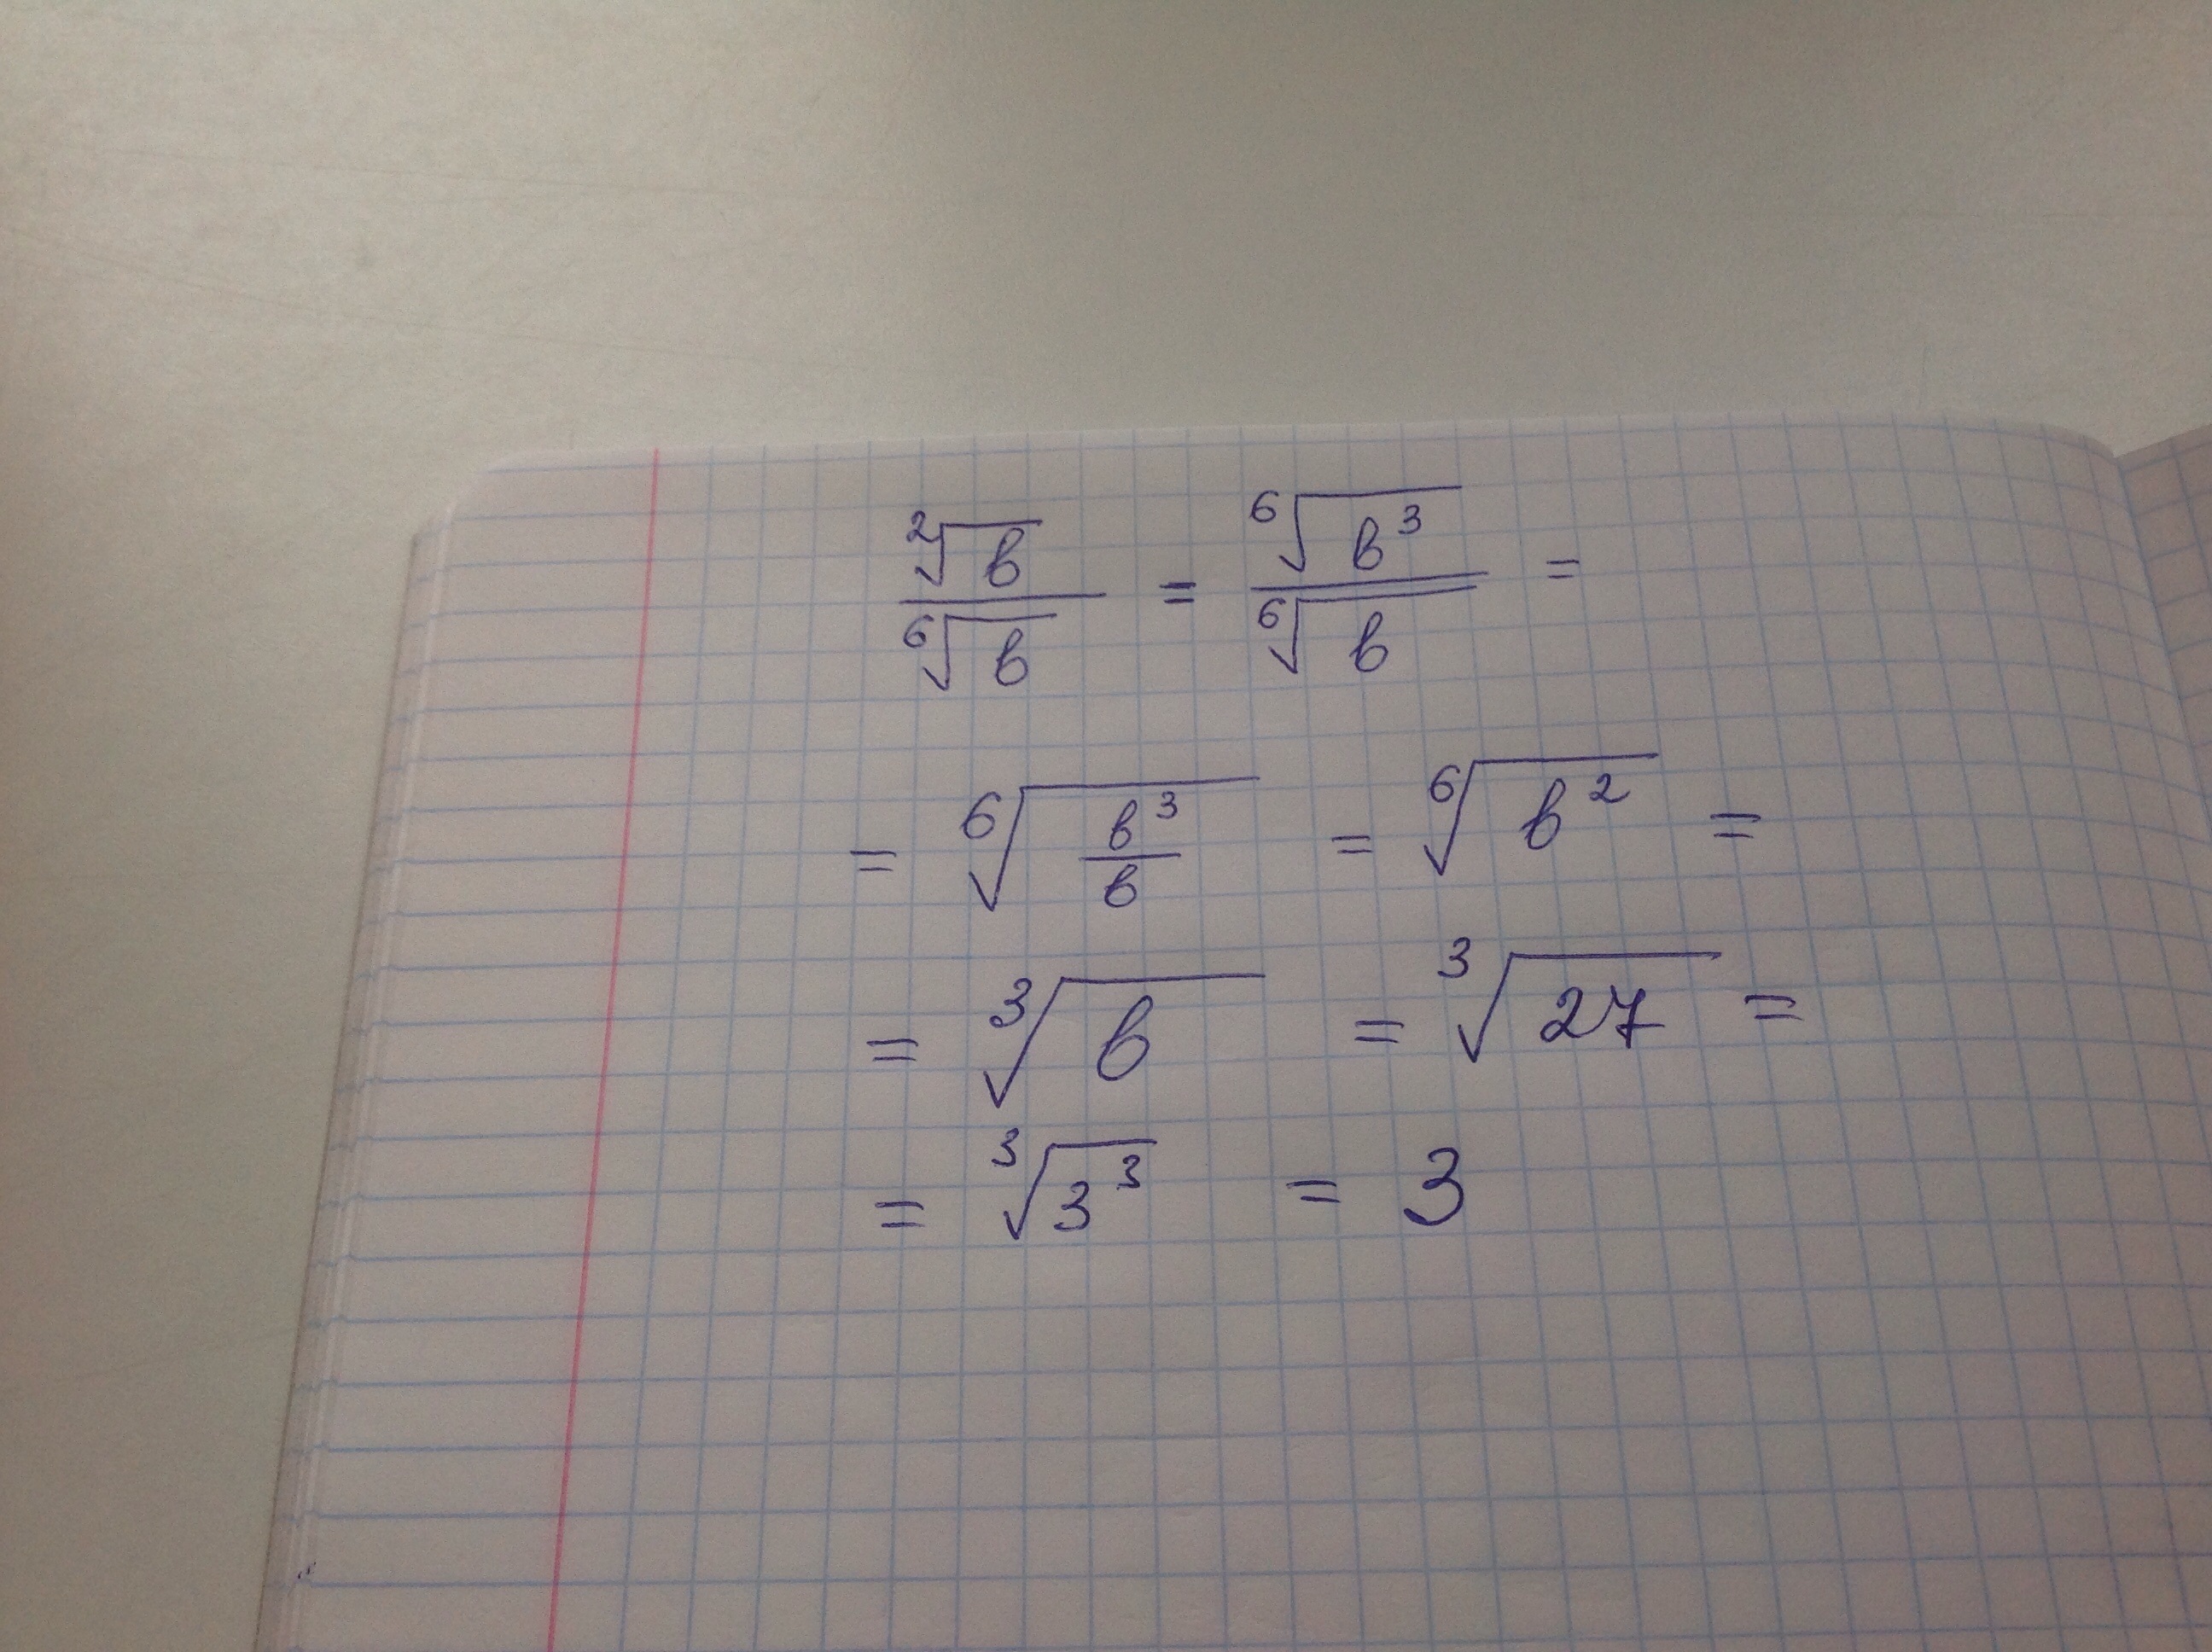 ²√b / ⁶√b = ⁶√b³ / ⁶√b =
= ⁶√(b³/b) = ⁶√b² =
= ³√b = ³√27 =
= ³√3³ = 3